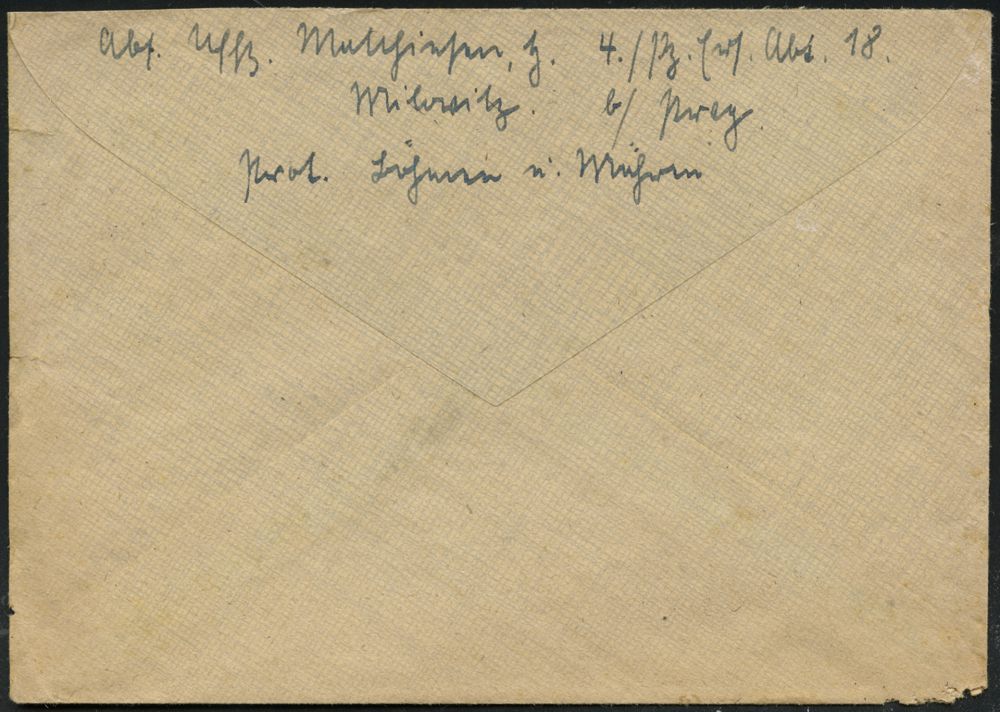 Abs. Uffz. Matthiesen, H. 4./Pz. Ers. Abt. 18.
Milowitz. b/ Prag.
Prot. Böhmen u. Mähren